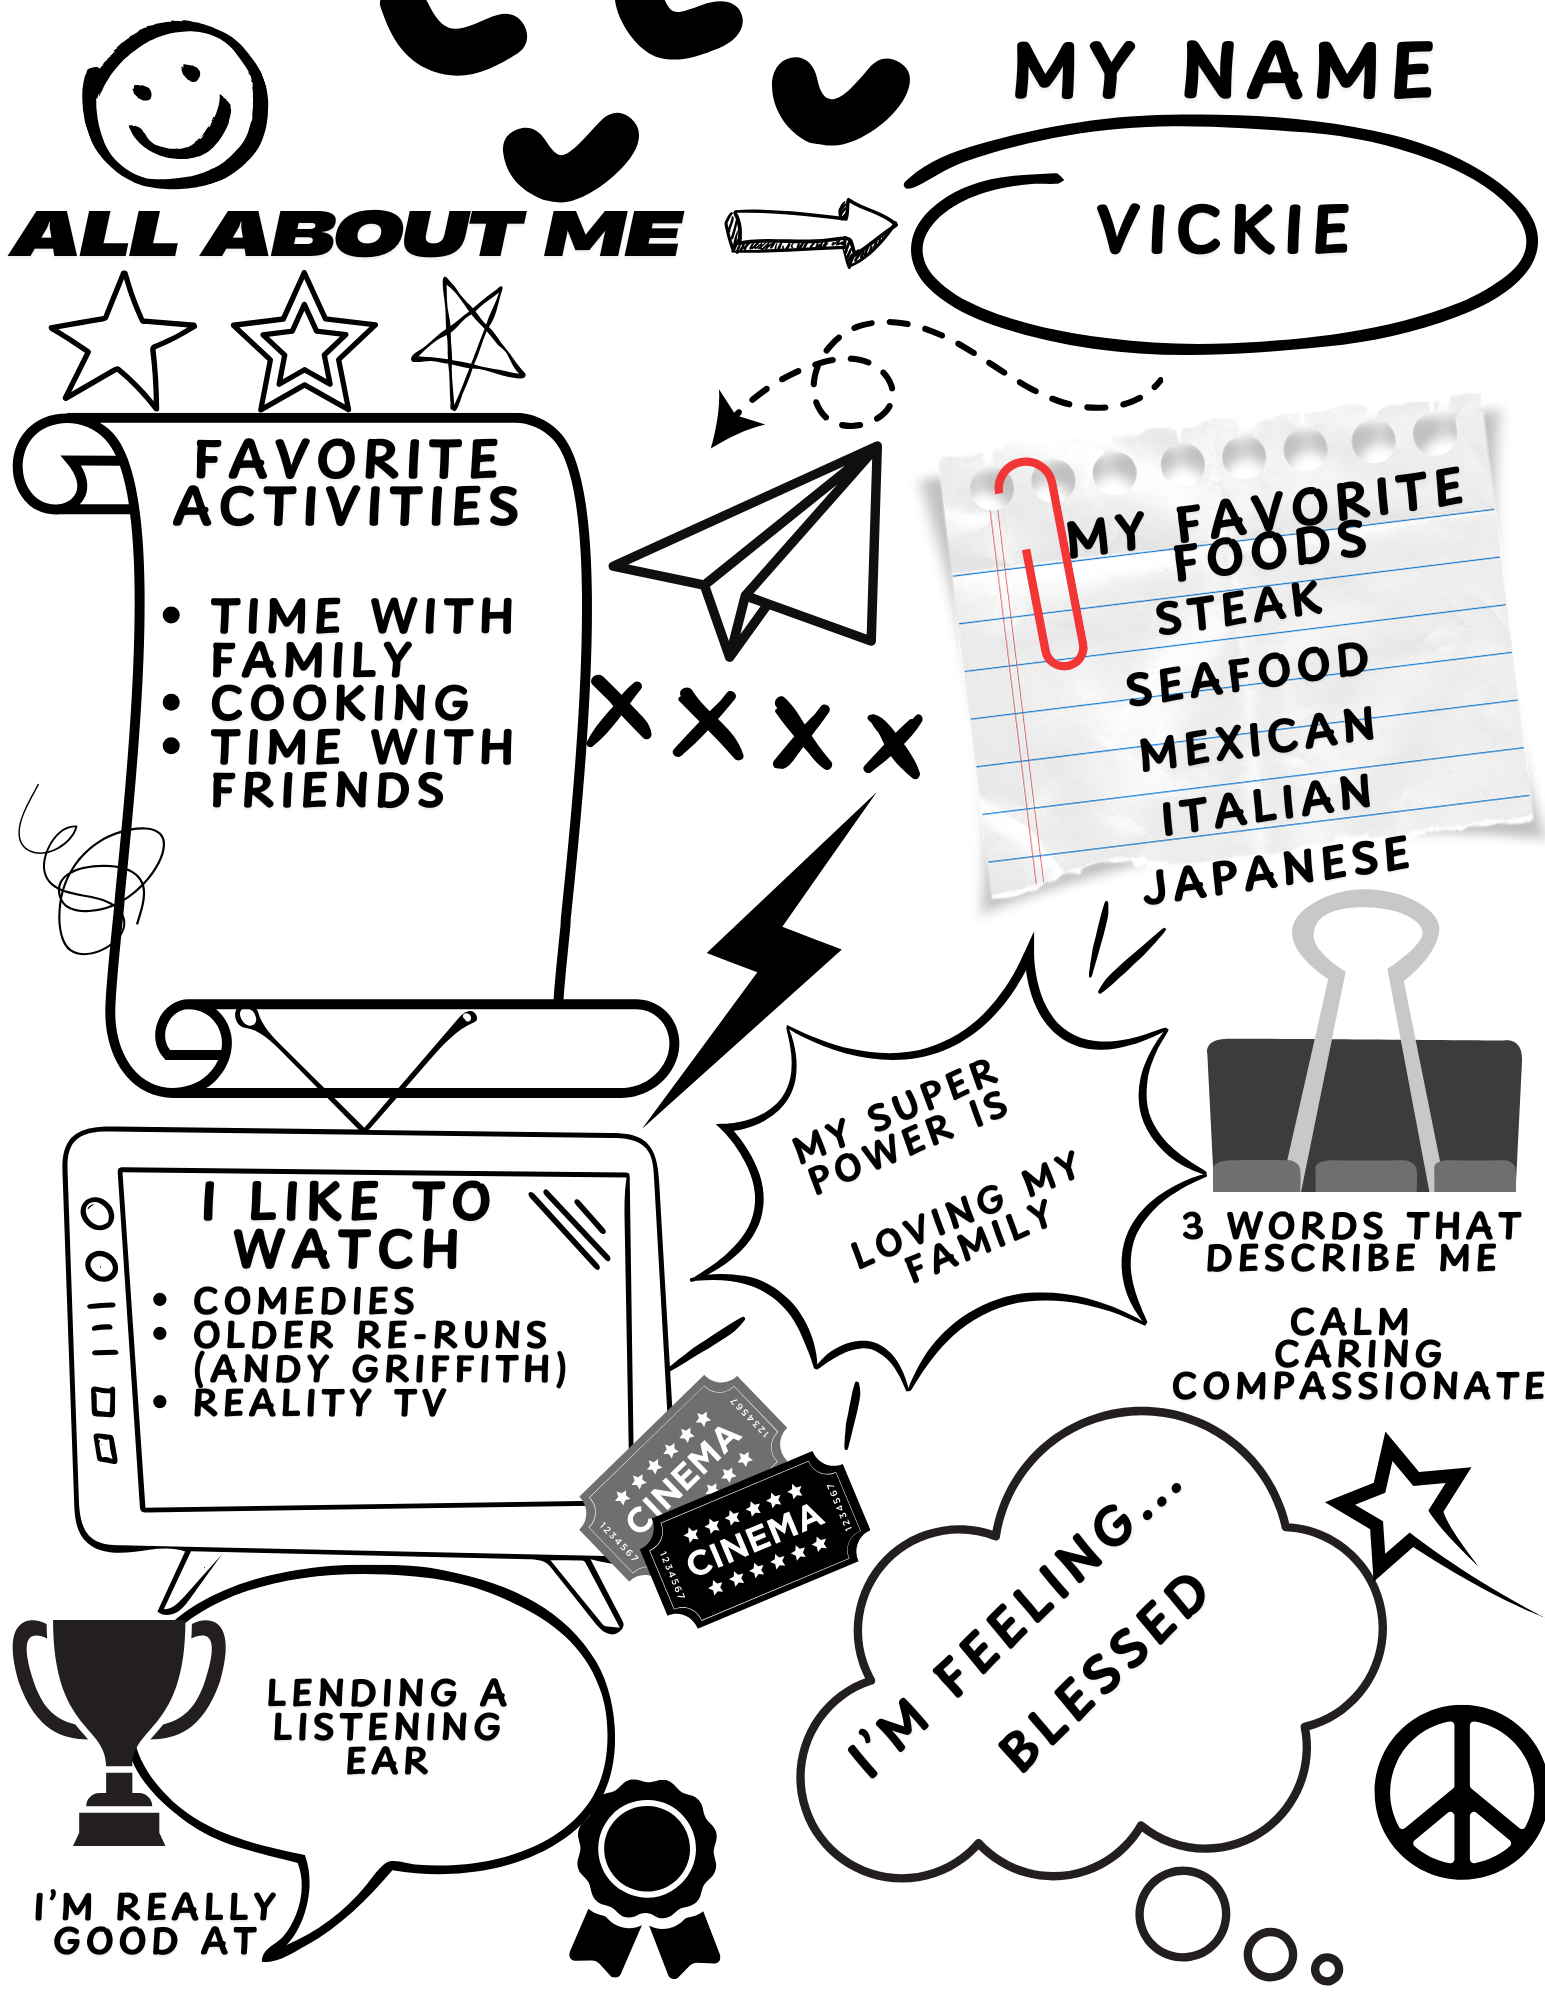 MY NAME
VICKIE
ALL ABOUT ME
FAVORITE
ACTIVITIES
• TIME WITH
FAMILY
• COOKING
• TIME WITH
FRIENDS
MY FAVORITE
FOODS
STEAK
SEAFOOD
MEXICAN
ITALIAN
JAPANESE
MY SUPER
POWER IS
LOVING MY
FAMILY
3 WORDS THAT
DESCRIBE ME
CALM
CARING
COMPASSIONATE
I LIKE TO
WATCH
• COMEDIES
• OLDER RE-RUNS
(ANDY GRIFFITH)
• REALITY TV
1234567
CINEMA
1234567
1234567
CINEMA
1234567
I'M FEELING...
BLESSED
LENDING A
LISTENING
EAR
I'M REALLY
GOOD AT